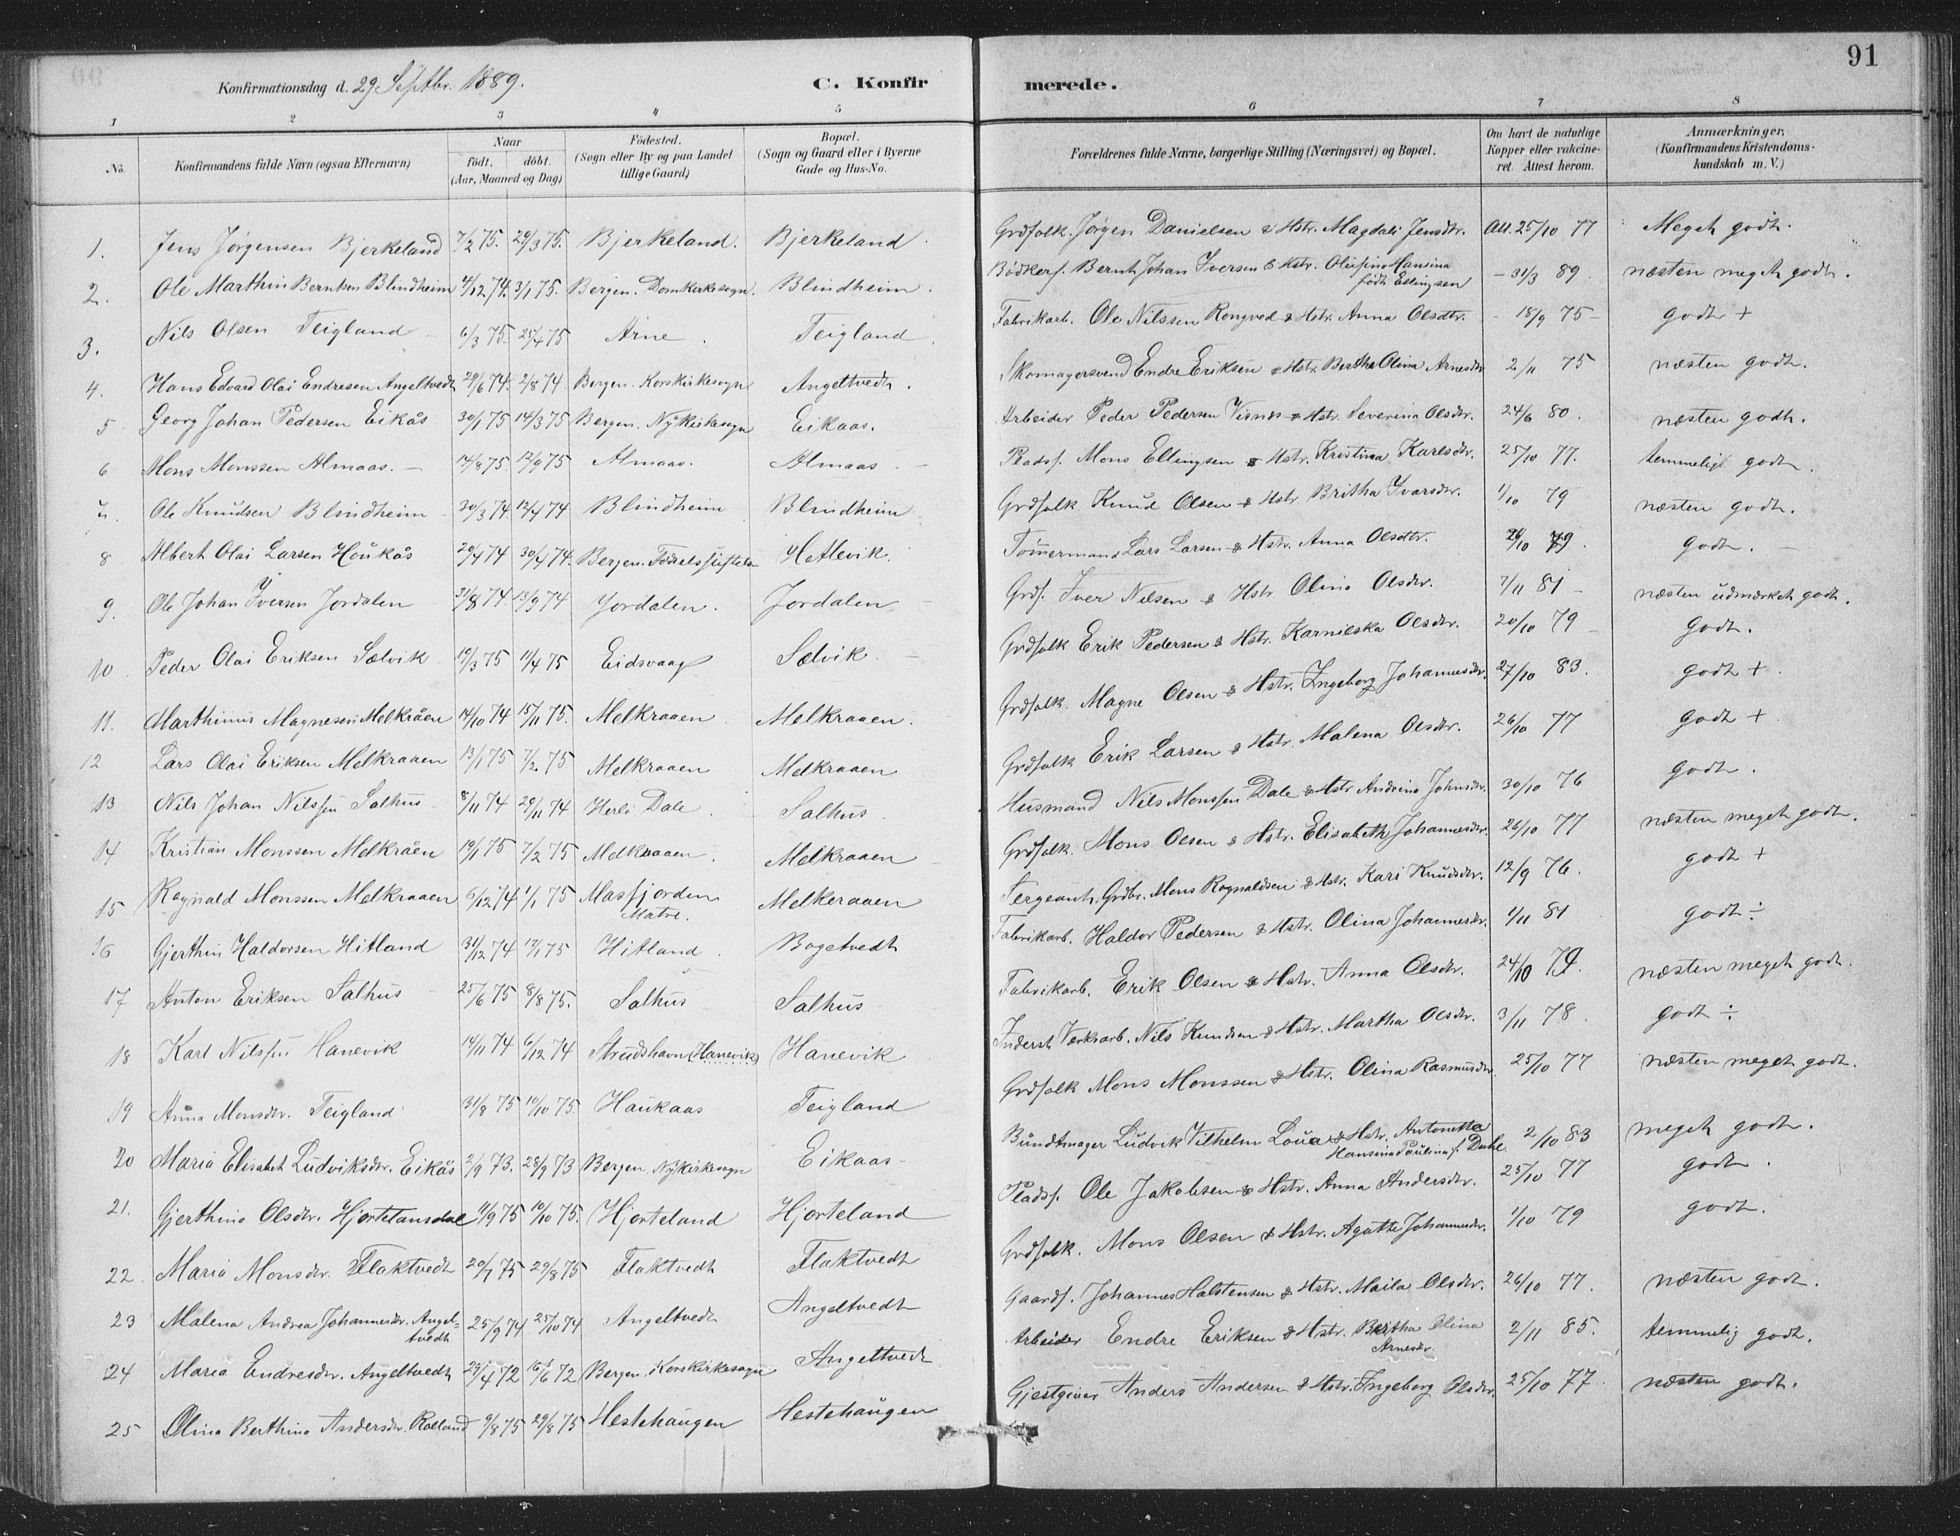 91
Konfirmationsdag d. 29 Septbr. 1889. C. Konfir merede.
1 2 3 4 5 6 7 8
No. Konfirmandens fulde Navn (ogsaa Efternavn) Naar födt. döbt. (Aar, Maaned og Dag) Födested. (Sogn eller By og paa Landet tillige Gaard) Bopæl. (Sogn og Gaard eller i Byerne Gade og Hus-No. Forældrenes fulde Navne, borgerlige Stilling (Næringsvei) og Bopæl. Om havt de naturlige Kopper eller vakcineret. Attest herom. Anmærkninger. (Konfirmandens Kristendomskundskab m. V.)
1. Jens Jørgensen Bjerkeland 7/2 75. 29/3 75. Bjerkeland. Bjerkeland. Grdfolk. Jørgen Danielsen & Hstr. Magdali Jensdtr. Att. 25/10 77 Meget godt.
2. Ole Marthin Berntsen Blindheim 4/12 74. 3/1 75. Bergen. Domkirkesogn. Blindheim. Bødkers. Bernt Johan Iversen & Hstr. Olufine Hansina født Ellingsen - 31/3 89. næsten meget godt.
3. Nils Olsen Teigland 6/3 75. 25/4 75 Arne. Teigland. Fabrikarb. Ole Nilssen Rongved & Hstr. Anna Olsdtr. - 18/9 75 - godt +
4. Hans Edvard Olai Endresen Angeltvedt 29/6 74. 2/8 74. Bergen. Korskirkesogn Angeltvedt. Skomagersvend Endre Eriksen & Hstr. Bertha Olina Arnesdtr 2/11 75 næsten godt.
5 Georg Johan Pedersen Eikås 30/1 75 14/3 75 Bergen. Nykirkesogn Eikaas. Arbeider Peder Pedersen & Hstr. Severina Olsdtr. 24/6 80. næsten godt.
6 Mons Monssen Almaas. 14/8 75 12/9 75 Almaas. Almaas. Pladsf. Mons Ellingsen & Hstr. Kristina Karlsdtr. 25/10 77. temmelig godt.
7. Ole Knudsen Blindheim 30/3 74. 12/4 74 Blindheim Blindheim Grdfolk Knud Olsen & Hstr. Britha Ivarsdtr. 1/10 79 næsten godt.
8 Albert Olai Larsen Houkås 20/4 74 30/4 74. Bergen. Födselsstiftelsen Hetlevik. Tömmermand Lars Larsen & Hstr. Anna Olsdtr. /10 79. godt.
9. Ole Johan Iversen Jordalen 31/8 74. 13/9 74 Jordalen. Jordalen Grdf. Iver Nilsen & Hstr Olina Olsdtr. 7/11 81 næsten udmærket godt.
10 Peder Olai Eriksen Sælvik 19/3 75 11/4 75 Eidsvaag Sælvik. Grdfolk Erik Pedersen & Hstr. Karnilska Olsdtr. 20/10 79 godt.
11. Marthinus Magnesen Melkråen 14/10 74 15/11 75. Melkraaen Melkraaen. Grdfolk. Magne Olsen & Hstr. Ingeborg Johannesdtr. 27/10 83. godt +
12 Lars Olai Eriksen Melkraaen 13/1 75 7/2 75 Melkraaen Melkraaen Grdfolk Erik Larsen & Hstr. Malena Olsdtr. 26/10 77 godt +
13 Nils Johan Nilssen Salhus 8/11 74 29/11 74 Herlö Dale Salhus. Husmand Nils Monssen Dale & Hstr Andrina Johnsdtr. 30/10 76 godt.
14 Kristian Monssen Melkråen 19/1 75 7/2 75 Melkraaen. Melkraaen Grdfolk. Mons Olsen & Hstr. Elisabeth Johannesdtr. 26/10 77 næsten meget godt.
15 Ragnald Monssen Melkraaen 6/12 74 1/1 75 Masfjorden Matre. Melkeraaen Sergeant, Grdbr. Mons Ragnaldsen & Hstr. Kari Knudsdtr. 12/9 76. godt +
16 Gjerthin Haldorsen Hitland 31/12 74 17/1 75 Hitland. Bogetvedt Fabrikarb. Haldor Pedersen & Hstr. Olina Johannesdtr. 1/11 81 godt ÷
17 Anton Eriksen Salhus 25/6 75 8/8 75. Salhus Salhus Fabrikarb. Erik Olsen & Hstr. Anna Olsdtr. 24/10 79. næsten meget godt.
18 Karl Nilssen Hanevik 14/11 74 6/12 74 Strudshavn (Hanevik) Hanevik Inderst Værksarb. Nils Knudsen & Hstr. Martha Olsdtr. 3/11 78. godt ÷
19 Anna Monsdtr. Teigland 31/8 75 10/10 75. Haukaas Teigland Grdfolk Mons Monssen & Hstr. Olina Rasmusdtr. 25/10 77 næsten meget godt.
20 Maria Elisabet Ludviksdtr. Eikås 2/9 73. 28/9 73 Bergen. Nykirkesogn Eikaas Bundtmager Ludvik Vilhelm Loua & Hstr. Antonetta Hansina Paulina f. Dahl 2/10 83 meget godt.
21. Gjerthine Olsdtr. Hjortelansdal 11/9 75 10/10 75. Hjorteland Hjorteland Pladsf. Ole Jakobsen & Hstr. Anna Andersdtr. 25/10 77 godt.
22. Maria Monsdtr. Flaktvedt 20/7 75 29/8 75 Flaktvedt Flaktvedt Grdfolk. Mons Olsen & Hstr. Agathe Johannesdtr. 1/10 79 godt.
23 Malena Andrea Johannesdtr. Angeltvedt 25/9 74 25/10 74 Angeltvedt Angeltvedt Gaardf. Johannes Halstensen & Hstr. Maila Olsdtr. 26/10 77. næsten godt.
24 Maria Endresdtr. Angeltvedt 29/4 72 16/6 72 Bergen. Korskirkesogn Angeltvedt Arbeider Endre Eriksen & Hstr. Bertha Olina Arnesdr. 2/11 85. temmelig godt.
25 Olina Berthina Andersdtr. Rolland 9/8 75 29/8 75 Hestehaugen Hestehaugen Gjestgiver Anders Andersen & Hstr. Ingeborg Olsdtr. 25/10 77. næsten godt.